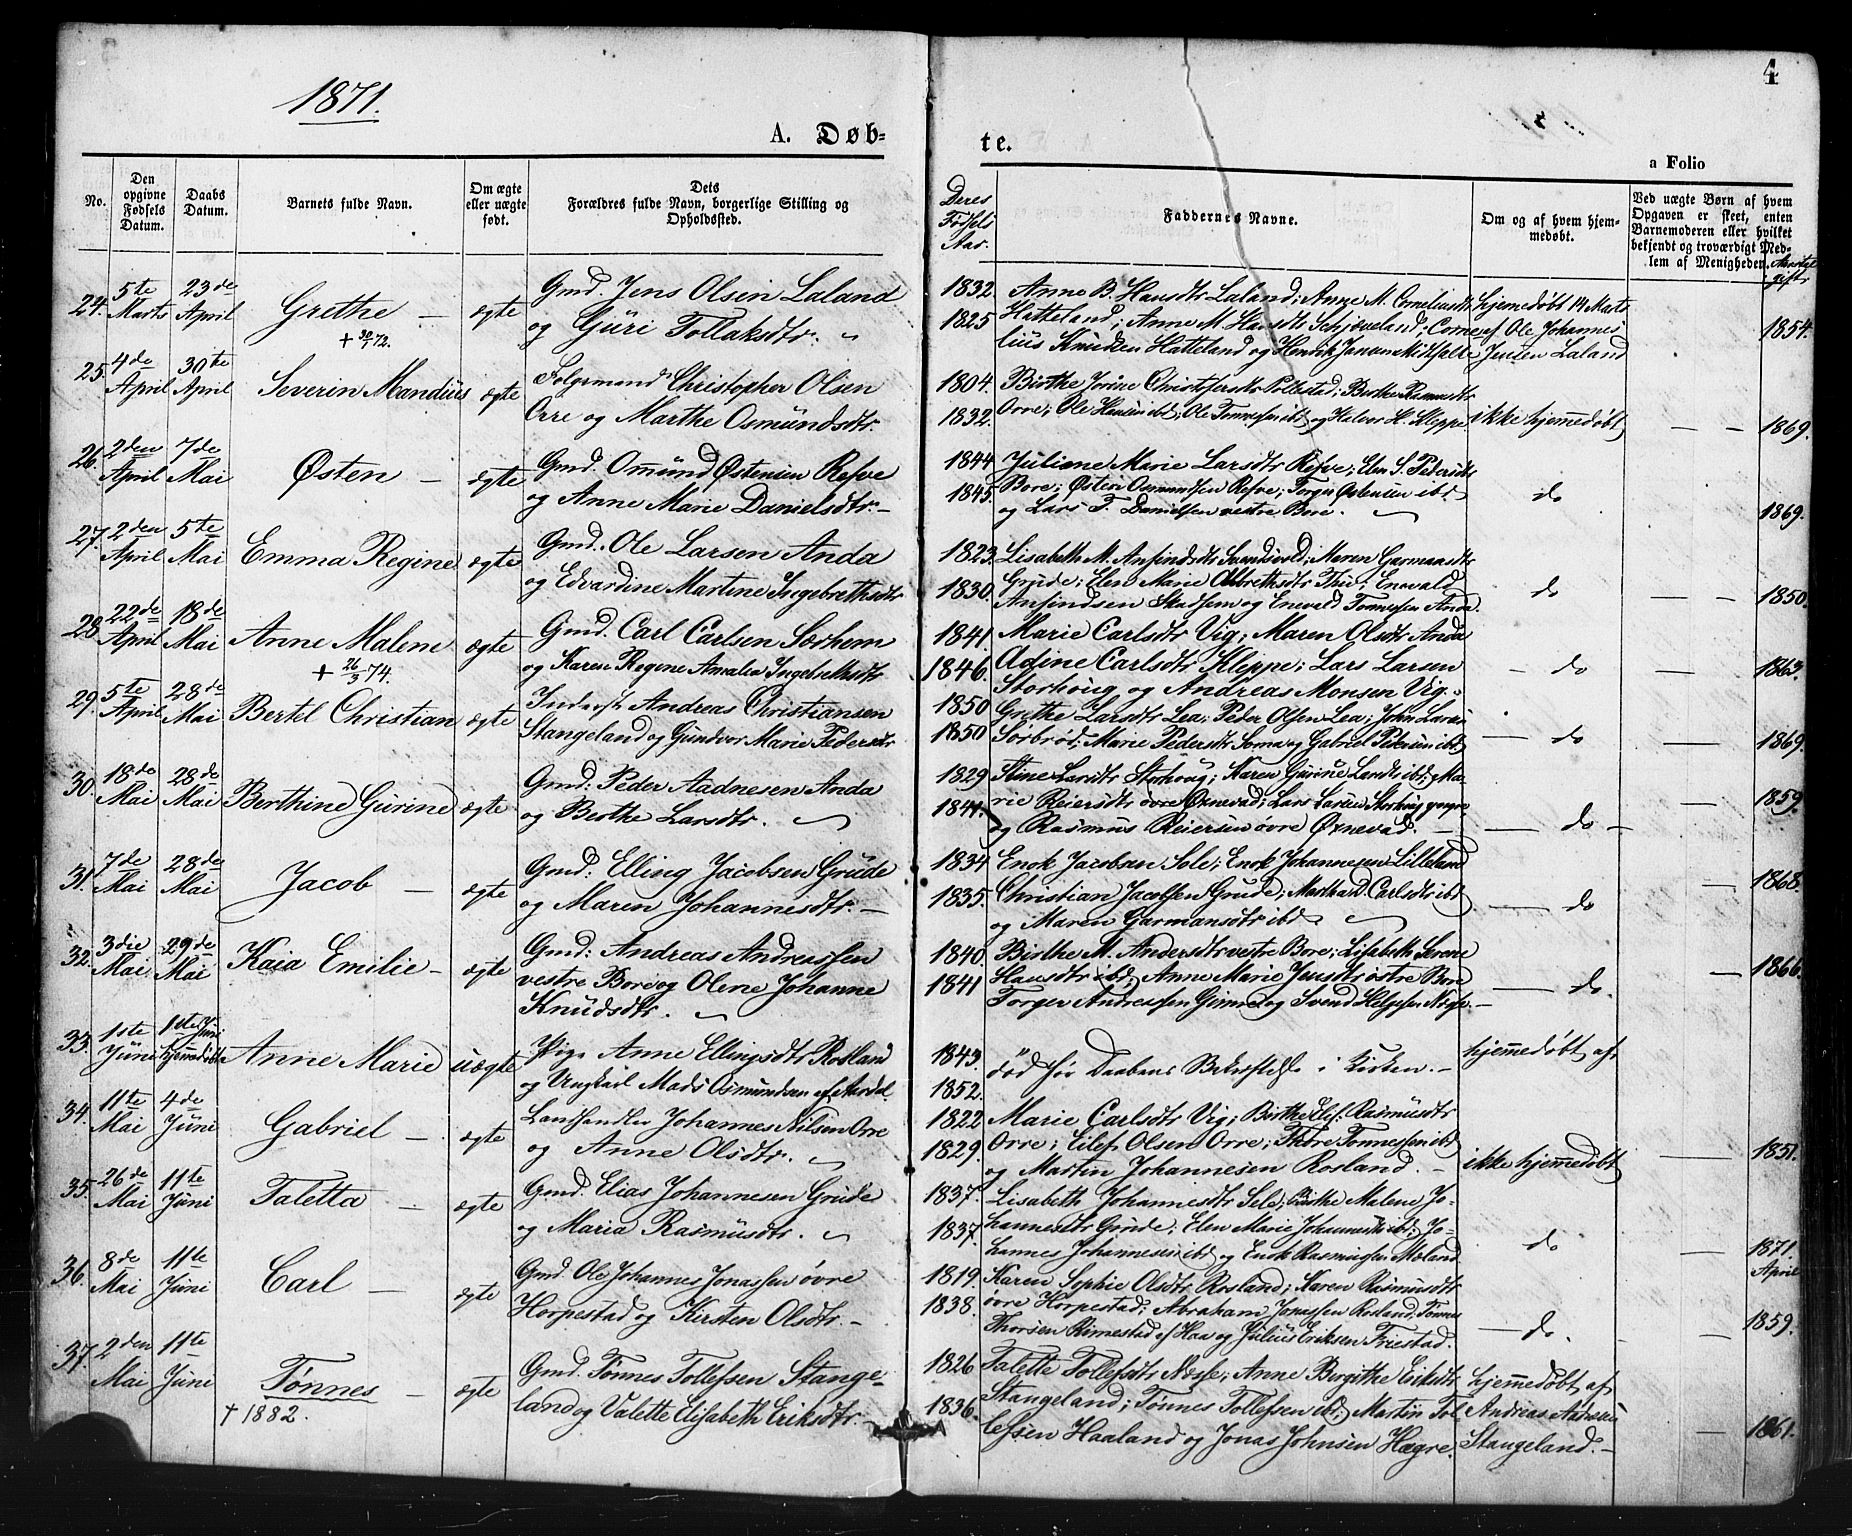 1871.
4
A. Døb-
te.
a Folio
No.
Den opgivne Fødsels Datum.
Daabs Datum.
Barnets fulde Navn.
Om ægte eller uægte født.
Dets
Forældres fulde Navn, borgerlige Stilling og Opholdssted.
Deres Fødsels Aar.
Faddernes Navne.
Om og af hvem hjemmedøbt.
Ved uægte Børn af hvem
Opgaven er skeet, enten
Barnemoderen eller hvilket
bekjendt og troværdigt Med-
lem af Menigheden.
gift
24. 5te Marts 23de April Grethe — ægte Gmd. Jens Olsen Laland 1832. Anne B. Hansdtr Laland; Anne M. Corneliusdtr hjemmedøbt 14 Marts
+ 30/1 72. og Güri Tollaksdtr. 1825 Hatteland; Anne M. Hansdtr Schjæveland; Corne- af Ole Johannes 1854.
lius Knudsen Hatteland og Henrik Jensen Jensen Laland
25. 4de April 30te April Severin Mandius ægte Folgemand Christopher Olsen 1804. Birthe Jorine Christophersdtr Polkestad; Birthe Rasmusdtr
Orre og Marthe Osmündsdtr. 1832. Orre; Ole Hansen ibd; Ole Tønnessen ibd og Halvor H. Kleppe ikke hjemmedøbt — — 1869.
26. 2den April 7de Mai Østen — ægte Gmd. Omünd Østensen Refve 1844 Juliane Marie Larsdtr Refve; Elen S. Pedersdtr
og Anne Marie Danielsdtr.— 1845. Bore; Østen Osmundsen Refve; Torger Østensen ibd do
og Lars T. Danielsen vestre Bore. 1869.
27. 2den April 5te Mai Emma Regine ægte Gmd. Ole Larsen Anda 1823. Lisabeth M. Ansfindsdtr Svendsvold; Maren Garmansdtr
og Edvardine Martine Ingebrethsdtr 1830. Grude; Elen Marie Olbrethsdtr Thu; Enevald do — — 1850.
Ansfindsen Skadsem og Enevald Tønnessen Anda.
28. 22de April 18de Mai Anne Malene ægte Gmd. Carl Carlsen Sørhem 1841. Marie Carlsdtr Vig; Maren Olsdtr Anda
+ 26/3 74. og Karen Regine Amalia Ingebrethsdtr 1846. Adine Carlsdtr Kleppe; Lars Larsen — do — 1863.
Storhoug og Andreas Monsen Vig.
29. 5te April 28de Mai Bertel Christian ægte Inderst Andreas Christiansen 1850 Grethe Larsdtr Lea; Peder Olsen Lea; John Larsen
Stangeland og Gundvor Marie Pedersdtr 1850 Sørbrød; Marie Pedersdtr Soma og Gabriel Pedersen ibd — do — 1869.
30. 18de Mai 28de Mai Berthine Gürine ægte Gmd: Peder Aadnesen Anda 1829 Stine Larsdtr Storhoug; Karen Gurine Larsdtr ibd; Ma-
og Berthe Larsdtr. 1841. rie Reiersdtr øvre Øxnevad; Lars Larsen Storhoug yngre 1859.
og Rasmus Reiersen øvre Øxnevad. — do —
31. 7de Mai 28de Mai Jacob — ægte Gmd: Elling Jacobsen Grüde 1834 Enok Jacobsen Sele; Enok Johannesen Lilleland
og Maren Johannesdtr.— 1835. Christian Jacobsen Grude; Martha Carlsdtr ibd — do — 1868.
og Maren Garmansdtr ibd
32. 3die Mai 29de Mai Kaia Emilie — ægte Gmd: Andreas Andreassen 1840 Birthe M. Andersdtr vestre Bore; Lisabeth Serene
vestre Bore og Olene Johanne 1841 Hansdtr ibd; Anne Marie Jensdtr østre Bore — do. — 1866.
Knudsdtr. Torger Andreassen Gimre og Svend Helgesen Næse.—
33. 1ste Jüni 1ste Juni hjemmedøbt Anne Marie uægte Pige Anne Ellingsdtr Rosland 1843. død før Daabens Bekræftelse i Kirken.— hjemmedøbt af
og Ungkarl Mads Osmundsen af Aardal 1852.
34. 11te Mai 4de Jüni Gabriel — ægte Landhandler Johannes Nilsen Orre 1822 Marie Carlsdtr Vig; Birthe Elis. Rasmusdtr
og Anne Olsdtr. 1829. Orre; Eilef Olsen Orre; Thore Tønnessen ibd
og Martin Johannesen Rosland.— ikke hjemmedøbt — 1851.
35. 26de Mai 11te Jüni Taletta — ægte Gmd. Elias Johannesen Grüde 1837. Lisabeth Johannesdtr Sele; Birthe Malene Jo-
og Maria Rasmusdtr. 1837. hannesdtr Grude; Elen Marie Johannesdtr ibd; Jo- do
hannes Johannesen ibd og Enok Rasmussen Meland — 1871. April
36. 8de Mai 11te Jüni Carl — ægte Gmd. Ole Johannes Jonassen øvre 1819. Karen Sophie Olsdtr Rosland; Karen Rasmusdtr
Horpestad og Kirsten Olsdtr.— 1838. øvre Horpestad; Abraham Jonassen Rosland; Tønnes
Thorsen Rimestad af Haa og Julius Eriksen Friestad. — do. — 1859.
37. 2den Mai 11te Jüni Tønnes — ægte Gmd. Tønnes Tollefsen Stange- 1826 Talette Tollefsdtr Næse; Anne Bergithe Eriksdtr hjemmedøbt af
† 1882. land og Valette Elisabeth Eriksdtr. 1836. Stangeland; Tønnes Tollefsen ibd; Martin Tol- Andreas Andersen
lefsen Haaland og Jonas Johnsen Hægre. Stangeland.— 1861.